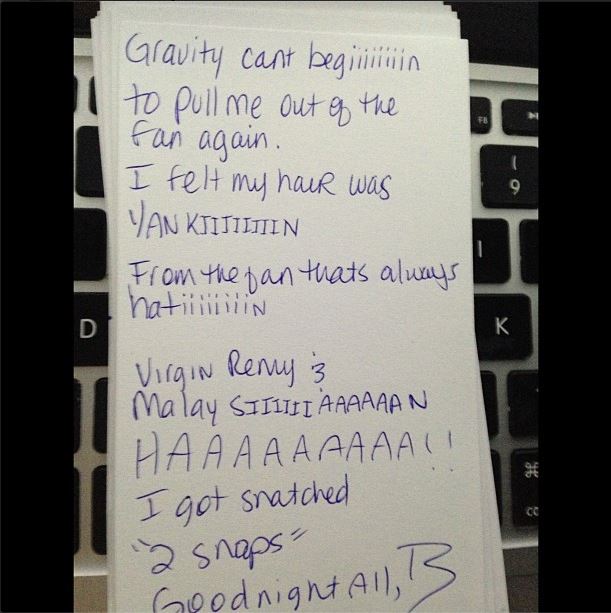 Gravity cant begiiiiiiiin
to pull me out of the
fan again.
I felt my haiR was
YANKIIIIIIIIN
From the fan thats always
hatiiiiiiiiiN
Virgin Remy &
Malay SIIIIIIIAAAAAAN
HAAAAAAAAAA!!
I got snatched
"2 snaps"
Goodnight All, B
F8
(
9
I
D
K
⌘